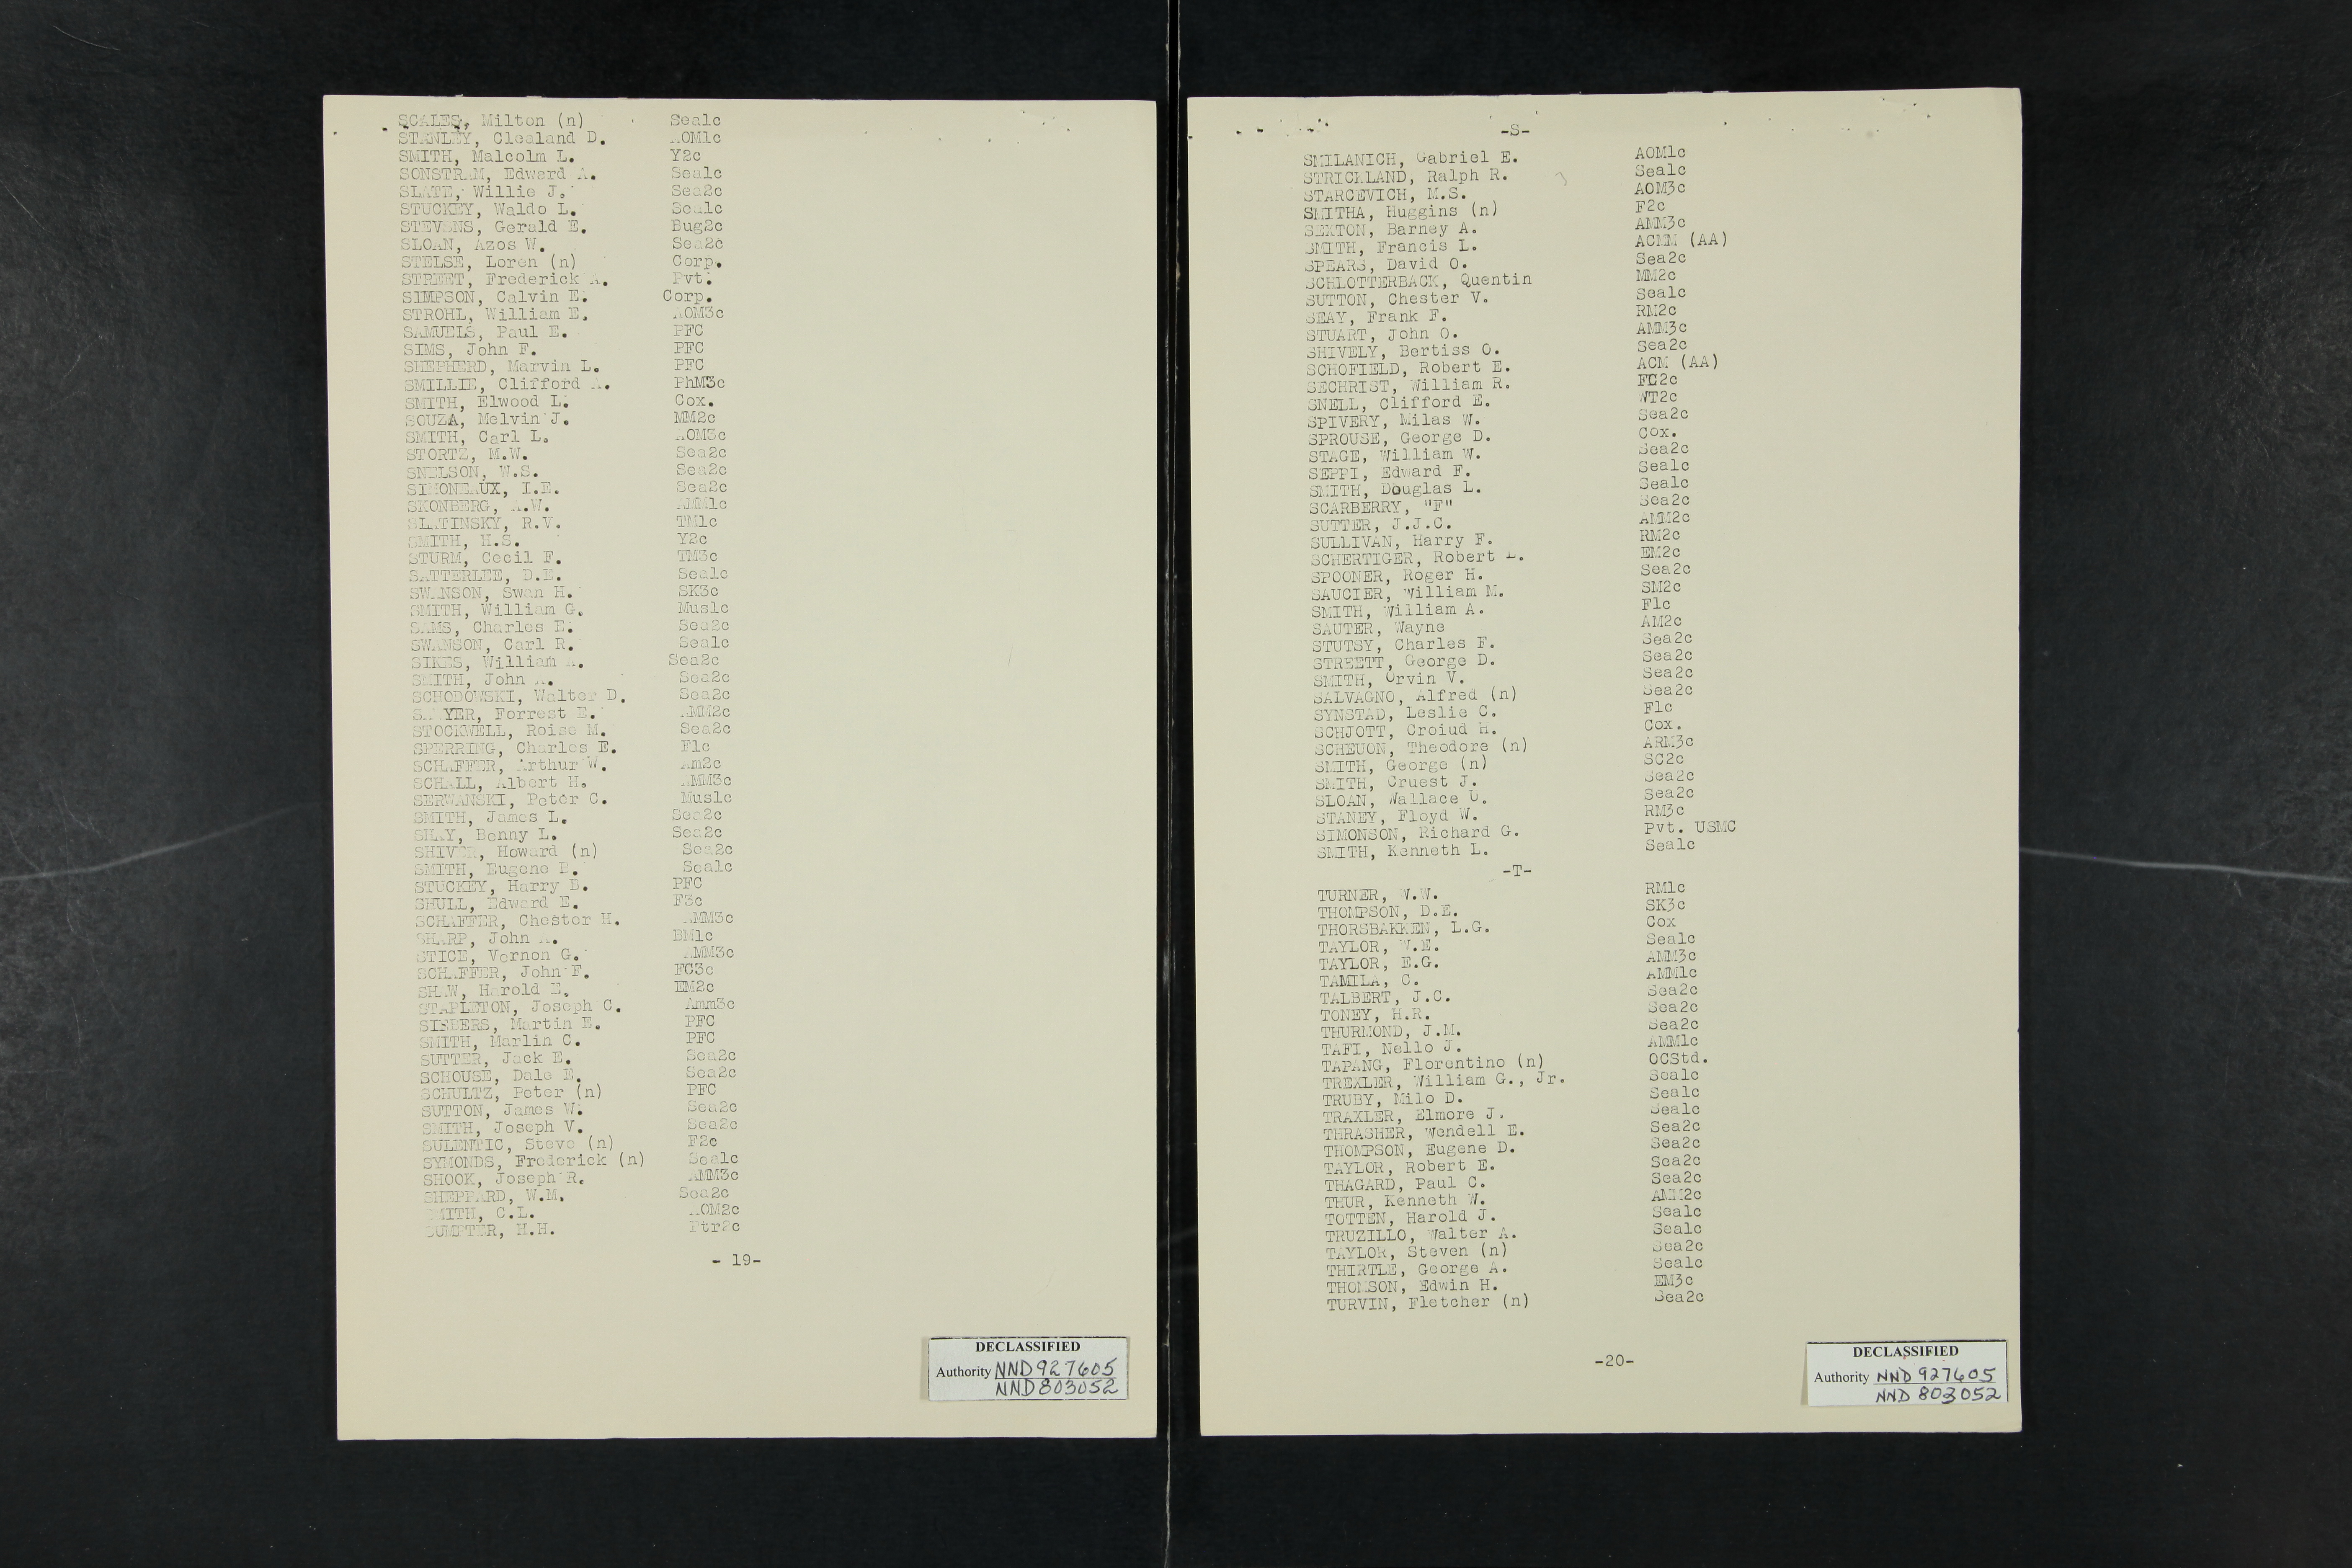 SCALES, Milton (n) Sea1c
STANLEY, Clealand D. AOM1c
SMITH, Malcolm L. Y2c
SONSTRAM, Edward A. Sea1c
SLATE, Willie J. Sea2c
STUCKEY, Waldo L. Sea1c
STEVENS, Gerald E. Bug2c
SLOAN, Azos W. Sea2c
STELSE, Loren (n) Corp.
STREET, Frederick A. Pvt.
SIMPSON, Calvin E. Corp.
STROHL, William E. AOM3c
SAMUELS, Paul E. PFC
SIMS, John F. PFC
SHEPHERD, Marvin L. PFC
SMILLIE, Clifford A. PhM3c
SMITH, Elwood L. Cox.
SOUZA, Melvin J. MM2c
SMITH, Carl L. AOM3c
STORTZ, M.W. Sea2c
SNELSON, W.S. Sea2c
SIMONEAUX, I.E. Sea2c
SKONBERG, A.W. AMM1c
SLATINSKY, R.V. TM1c
SMITH, H.S. Y2c
STURM, Cecil F. TM3c
SATTERLEE, D.E. Sea1c
SWANSON, Swan H. SK3c
SMITH, William G. Mus1c
SAMS, Charles E. Sea2c
SWANSON, Carl R. Sea1c
SIKES, William A. Sea2c
SMITH, John A. Sea2c
SCHODOWSKI, Walter D. Sea2c
SAWYER, Forrest E. AMM2c
STOCKWELL, Roise M. Sea2c
SPERRING, Charles E. F1c
SCHAFFER, Arthur W. Am2c
SCHALL, Albert H. AMM3c
SERWANSKI, Peter C. Mus1c
SMITH, James L. Sea2c
SILAY, Benny L. Sea2c
SHIVER, Howard (n) Sea2c
SMITH, Eugene B. Sea1c
STUCKEY, Harry B. PFC
SHULL, Edward E. F3c
SCHAFFER, Chester H. AMM3c
SHARP, John A. BM1c
STICE, Vernon G. AMM3c
SCHAFFER, John F. FC3c
SHAW, Harold E. EM2c
STAPLETON, Joseph C. Amm3c
SIEBERS, Martin E. PFC
SMITH, Marlin C. PFC
SUTTER, Jack E. Sea2c
SCHOUSE, Dale E. Sea2c
SCHULTZ, Peter (n) PFC
SUTTON, James W. Sea2c
SMITH, Joseph V. Sea2c
SULENTIC, Steve (n) F2c
SYMONDS, Frederick (n) Sea1c
SHOOK, Joseph R. AMM3c
SHEPPARD, W.M. Sea2c
SMITH, C.L. AOM2c
SUMPTER, H.H. Ptr2c
- 19-
DECLASSIFIED
Authority NND927605
NND803052
-S-
SMILANICH, Gabriel E. AOM1c
STRICKLAND, Ralph R. Sea1c
STARCEVICH, M.S. AOM3c
SMITHA, Huggins (n) F2c
SEXTON, Barney A. AMM3c
SMITH, Francis L. ACMM (AA)
SPEARS, David O. Sea2c
SCHLOTTERBACK, Quentin MM2c
SUTTON, Chester V. Sea1c
SEAY, Frank F. RM2c
STUART, John O. AMM3c
SHIVELY, Bertiss O. Sea2c
SCHOFIELD, Robert E. ACM (AA)
SECHRIST, William R. FC2c
SNELL, Clifford E. WT2c
SPIVERY, Milas W. Sea2c
SPROUSE, George D. Cox.
STAGE, William W. Sea2c
SEPPI, Edward F. Sea1c
SMITH, Douglas L. Sea1c
SCARBERRY, "F" Sea2c
SUTTER, J.J.C. AMM2c
SULLIVAN, Harry F. RM2c
SCHERTIGER, Robert L. EM2c
SPOONER, Roger H. Sea2c
SAUCIER, William M. SM2c
SMITH, William A. F1c
SAUTER, Wayne AM2c
STUTSY, Charles F. Sea2c
STREETT, George D. Sea2c
SMITH, Orvin V. Sea2c
SALVAGNO, Alfred (n) Sea2c
SYNSTAD, Leslie C. F1c
SCHJOTT, Croiud H. Cox.
SCHEUON, Theodore (n) ARM3c
SMITH, George (n) SC2c
SMITH, Cruest J. Sea2c
SLOAN, Wallace U. Sea2c
STANEY, Floyd W. RM3c
SIMONSON, Richard G. Pvt. USMC
SMITH, Kenneth L. Sea1c
-T-
TURNER, W.W. RM1c
THOMPSON, D.E. SK3c
THORSBAKKEN, L.G. Cox
TAYLOR, W.E. Sea1c
TAYLOR, E.G. AMM3c
TAMILA, C. AMM1c
TALBERT, J.C. Sea2c
TONEY, H.R. Sea2c
THURMOND, J.M. Sea2c
TAFI, Nello J. AMM1c
TAPANG, Florentino (n) OCStd.
TREXLER, William G., Jr. Sea1c
TRUBY, Milo D. Sea1c
TRAXLER, Elmore J. Sea1c
THRASHER, Wendell E. Sea2c
THOMPSON, Eugene D. Sea2c
TAYLOR, Robert E. Sea2c
THAGARD, Paul C. Sea2c
THUR, Kenneth W. AMM2c
TOTTEN, Harold J. Sea1c
TRUZILLO, Walter A. Sea1c
TAYLOR, Steven (n) Sea2c
THIRTLE, George A. Sea1c
THOMSON, Edwin H. EM3c
TURVIN, Fletcher (n) Sea2c
-20-
DECLASSIFIED
Authority NND 927605
NND 803052